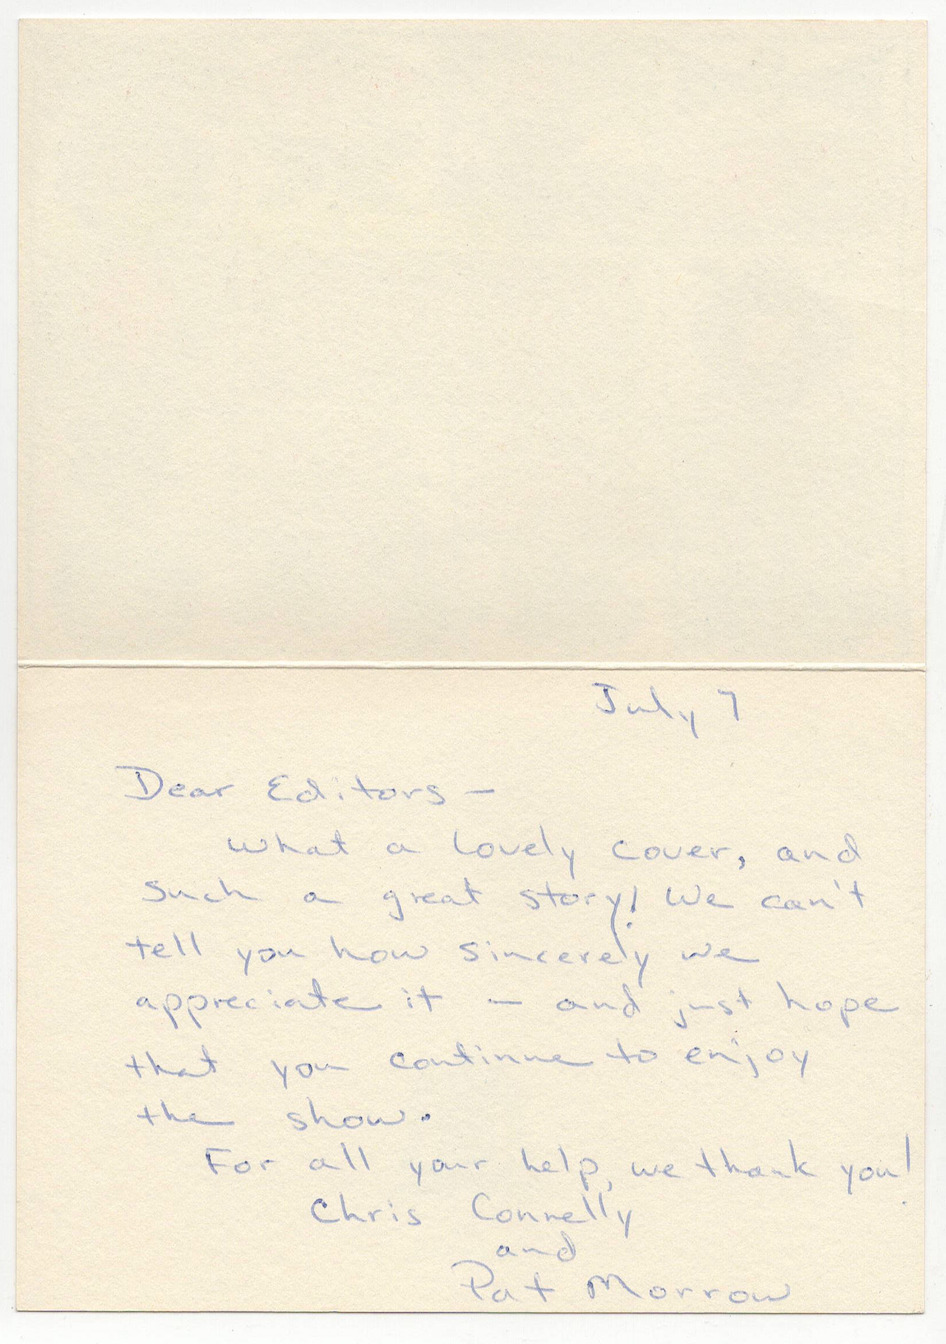 July 7
Dear Editors -
What a lovely cover, and
such a great story! We can't
tell you how sincerely we
appreciate it - and just hope
that you continue to enjoy
the show.
For all your help, we thank you!
Chris Connelly
and
Pat Morrow